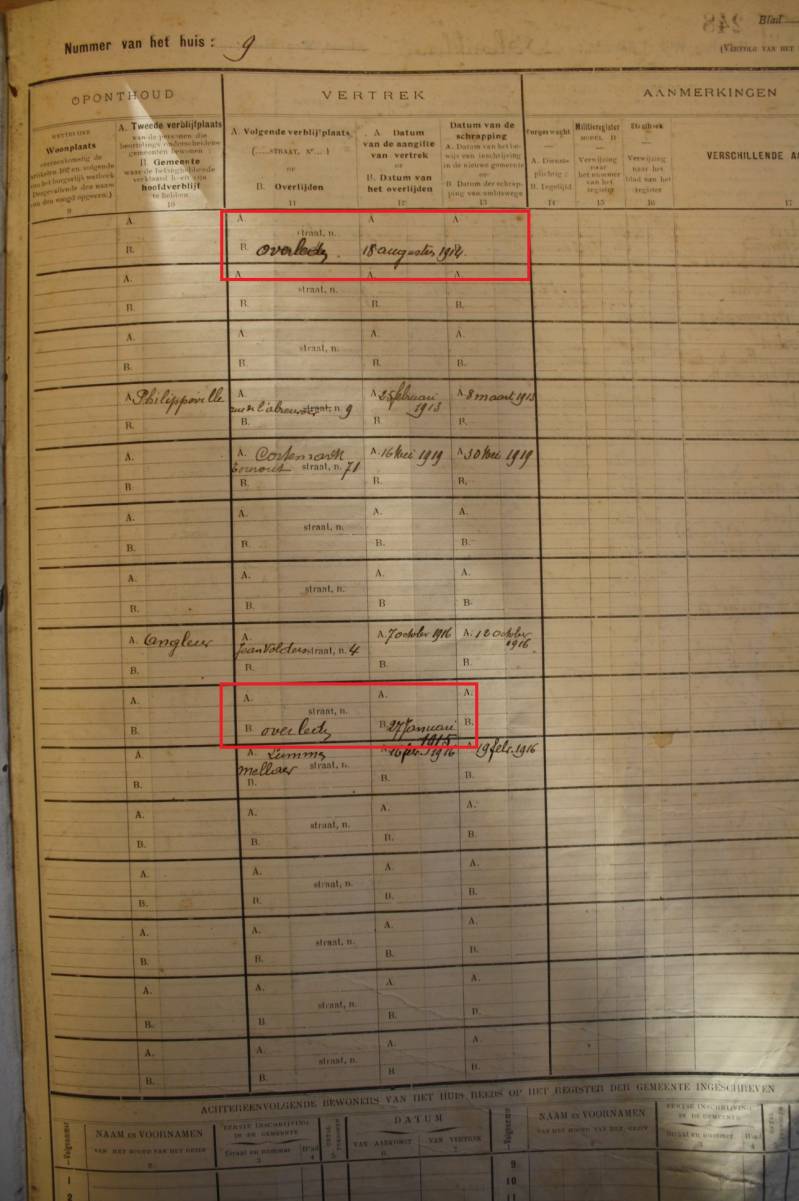 248
Blad
Nummer van het huis : 9
(VERVOLG VAN HET
OPONTHOUD
VERTREK
AANMERKINGEN
WETTELIJKE
Woonplaats
A. Tweede verblijfplaats
van de personen die
beurtelings onderscheidene
gemeenten bewonen
B. Gemeente
hoofdverblijf
te hebben
10
A. Volgende verblijfplaats
(.....STRAAT, Nr... )
OF
B. Overlijden
11
A. Datum
van de aangifte
van vertrek
OF
B. Datum van
het overlijden
12
Datum van de
schrapping
A. Datum van het be-
wijs van inschrijving
in de nieuwe gemeente
OF
B. Datum der schrap-
ping van ambtswege
13
Burgerwacht
A. Dienst-
plichtig :
B. Ingelijfd
14
Militieregister
Verwijzing
naar
het nummer
van het
register
15
Verwijzing
naar het
blad van het
register
16
VERSCHILLENDE
17
A. A. A. A.
straat, n.
B. B. overleden 18 augustus 1914.
A. A. A. A.
straat, n.
B. B. B. B.
A. A. A. A.
straat, n.
B. B. B. B.
A. Philippeville A. A. 25 februari 1913 A. 8 maart 1913
straat, n. 9
B. B. B. B.
A. A. Cortemarck A. 16 Mei 1919 A. 30 Mei 1919
straat, n. 71
B. B. B. B.
A. A. A. A.
straat, n.
B. B. B. B.
A. A. A. A.
straat, n.
B. B. B B.
A. Angleur A. A. 7 october 1916 A. 12 october 1916
Jean Volders straat, n. 4
B. B. B. B.
A. A. A. A.
straat, n.
B. B. overleden B. 27 Januari 1915 B.
A. A. A. 16 feb. 1916 A. 19 feb. 1916
straat, n.
B. B. B. B.
A. A. A. A.
straat, n.
B. B. B. B.
A. A. A. A.
straat, n.
B. B. B. B.
A. A. A. A.
straat, n.
B. B. B. B.
A. A. A. A.
straat, n.
B. B B. B.
A. A. A. A.
straat, n.
B. B. B B.
ACHTEREENVOLGENDE BEWONERS VAN HET HUIS REEDS OP HET REGISTER DER GEMEENTE INGESCHREVEN
Volgnummer
NAAM EN VOORNAMEN
VAN HET HOOFD VAN HET GEZIN
2
EERSTE INSCHRIJVING
IN DE GEMEENTE
Straat en nummer
3
Blad
4
5
DATUM
VAN AANKOMST
6
VAN VERTREK
7
Volgnummer
NAAM EN VOORNAMEN
VAN HET HOOFD VAN HET GEZIN
2
EERSTE INSCHRIJVING
IN DE GEMEENTE
Straat en nummer
3
Blad
4
1 9
2 10
11